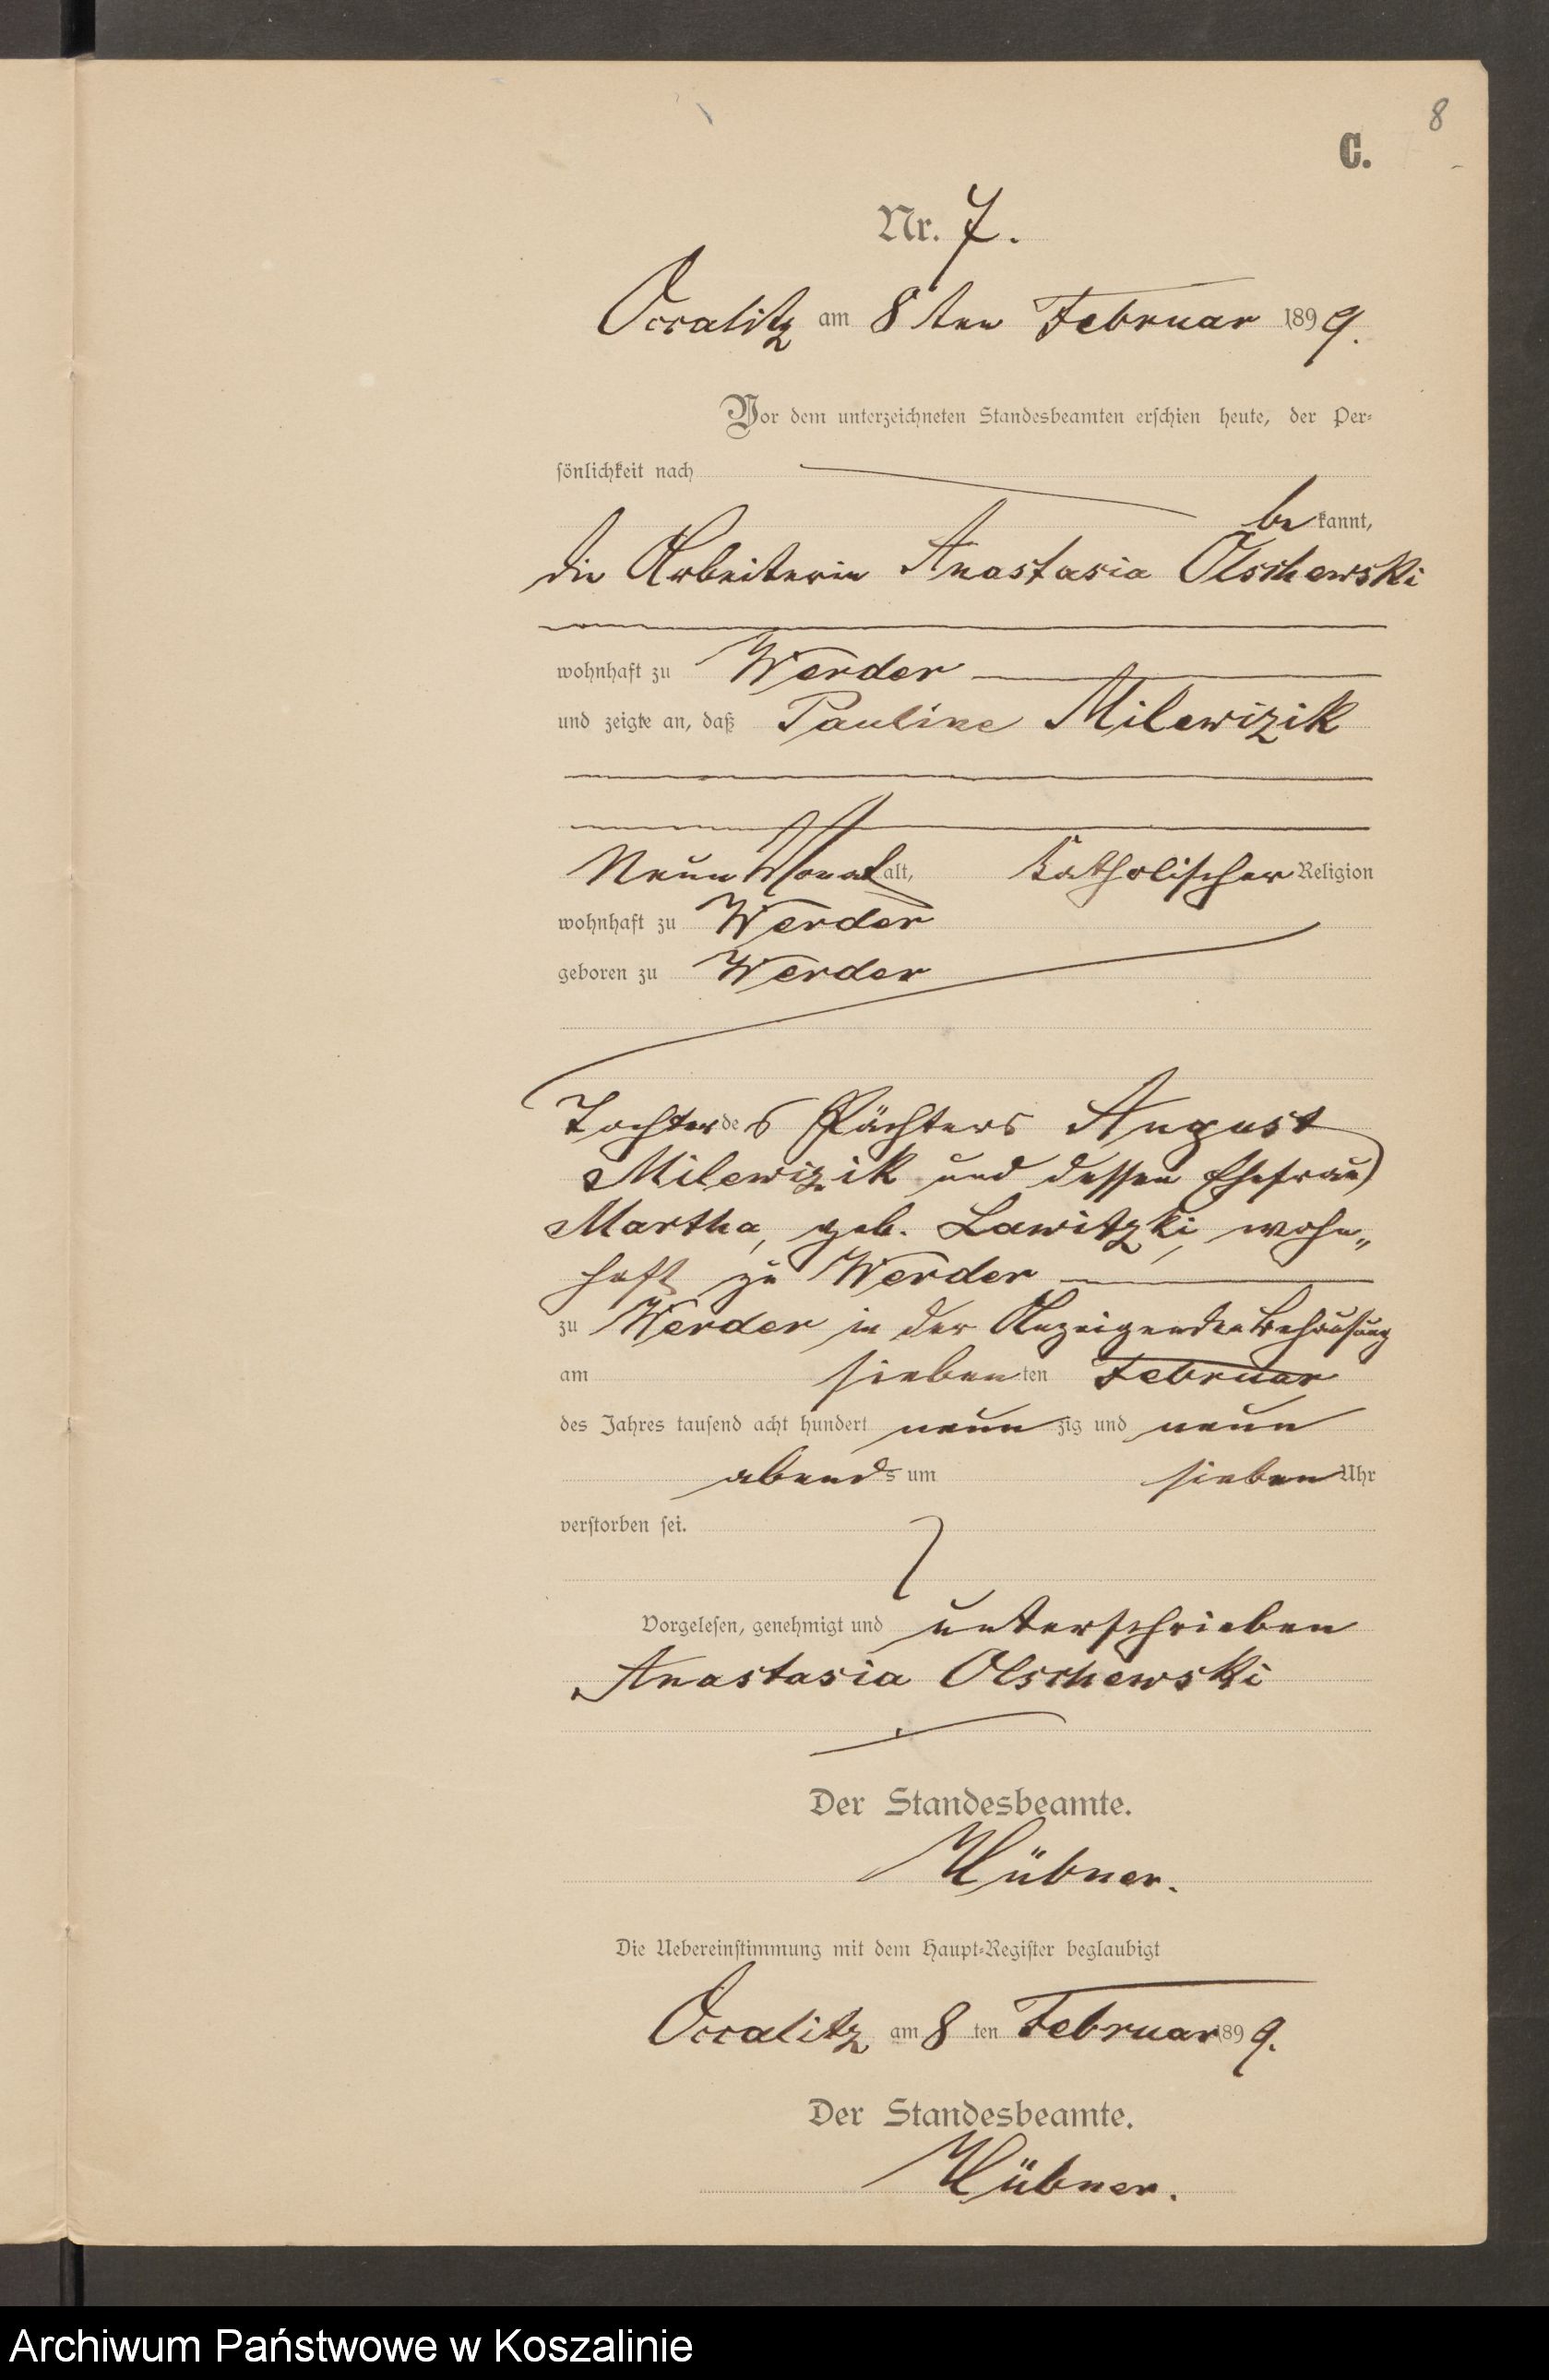 8
C.
Nr. 7.
Occalitz am 8ten Februar 1899.
Vor dem unterzeichneten Standesbeamten erschien heute, der Per-
sönlichkeit nach
bekannt,
die Arbeiterin Anastasia Olschewski
wohnhaft zu Werder
und zeigte an, daß Pauline Milewizik
Neun Monat alt, Katholischer Religion
wohnhaft zu Werder
geboren zu Werder
Tochter des Pächters August
Milewizik und dessen Ehefrau
Martha, geb. Lawitzki, wohn„
haft zu Werder
zu Werder in der Anzeigenden Behausung
am siebenten Februar
des Jahres tausend acht hundert neunzig und neun
abends um sieben Uhr
verstorben sei.
Vorgelesen, genehmigt und unterschrieben
Anastasia Olschewski
Der Standesbeamte.
Hübner.
Die Uebereinstimmung mit dem Haupt-Register beglaubigt
Occalitz am 8ten Februar 1899.
Der Standesbeamte.
Hübner.
Archiwum Państwowe w Koszalinie